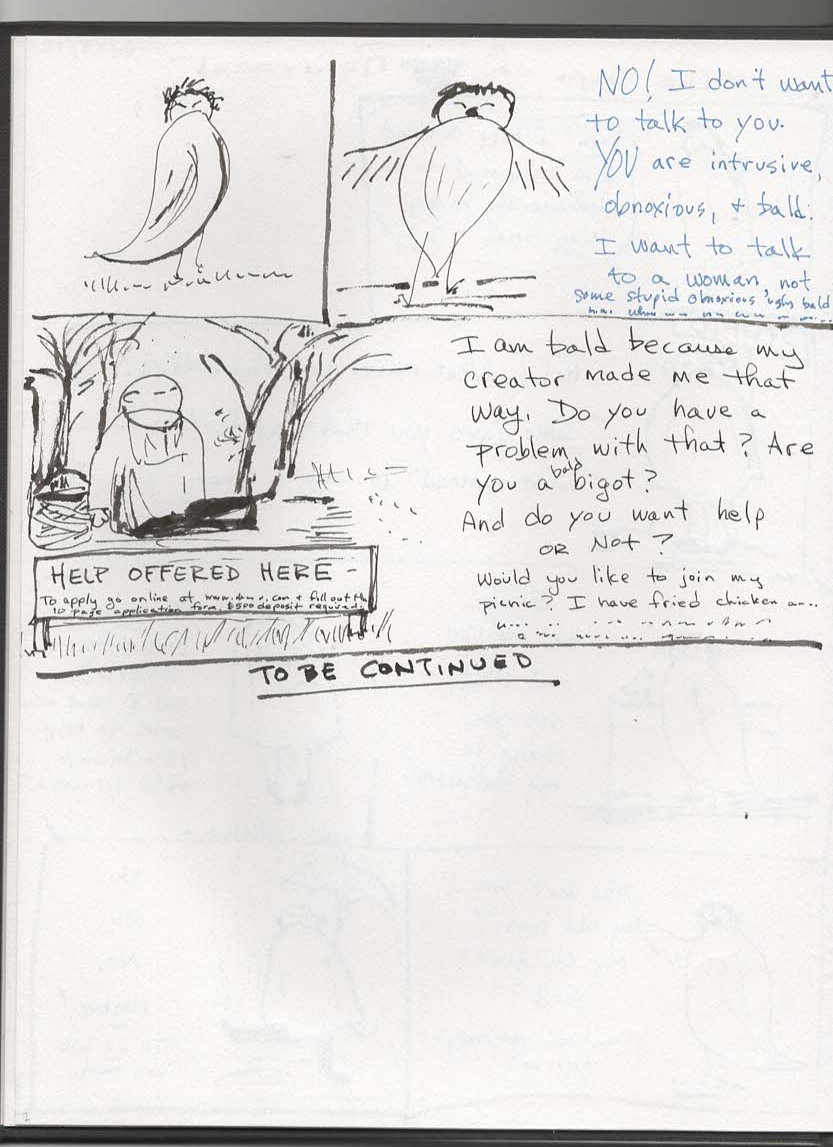 NO! I don't want
to talk to you.
YOU are intrusive,
obnoxious, & bald.
I want to talk
to a woman, not
some stupid obnoxious ugly bald
I am bald because my
creator made me that
way. Do you have a
problem with that? Are
you a bald bigot?
And do you want help
OR NOT?
Would you like to join my
picnic? I have fried chicken
HELP OFFERED HERE -
To apply go online at & fill out the
10 page application form. $500 deposit required.
TO BE CONTINUED